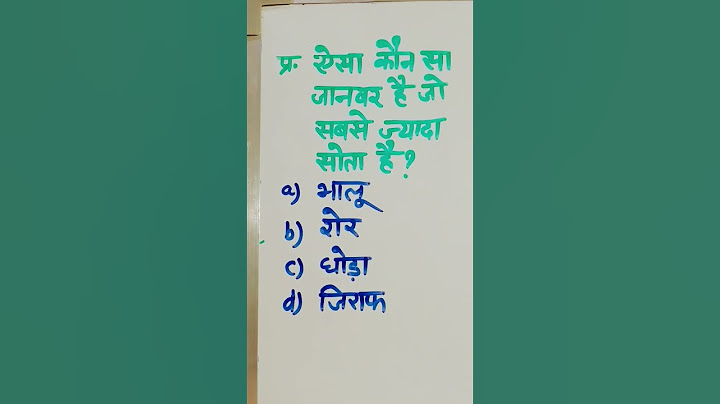 प्र. ऐसा कौन सा
जानवर है जो
सबसे ज्यादा
सोता है?
a) भालू
b) शेर
c) घोड़ा
d) जिराफ